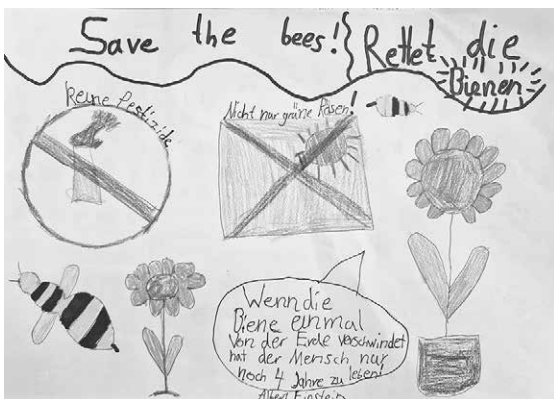 Save the bees! Rettet die
Bienen!
Keine Pestizide
Nicht nur grüne Rasen!
Wenn die
Biene einmal
Von der Erde verschwindet
hat der Mensch nur
noch 4 Jahre zu leben!
Albert Einstein